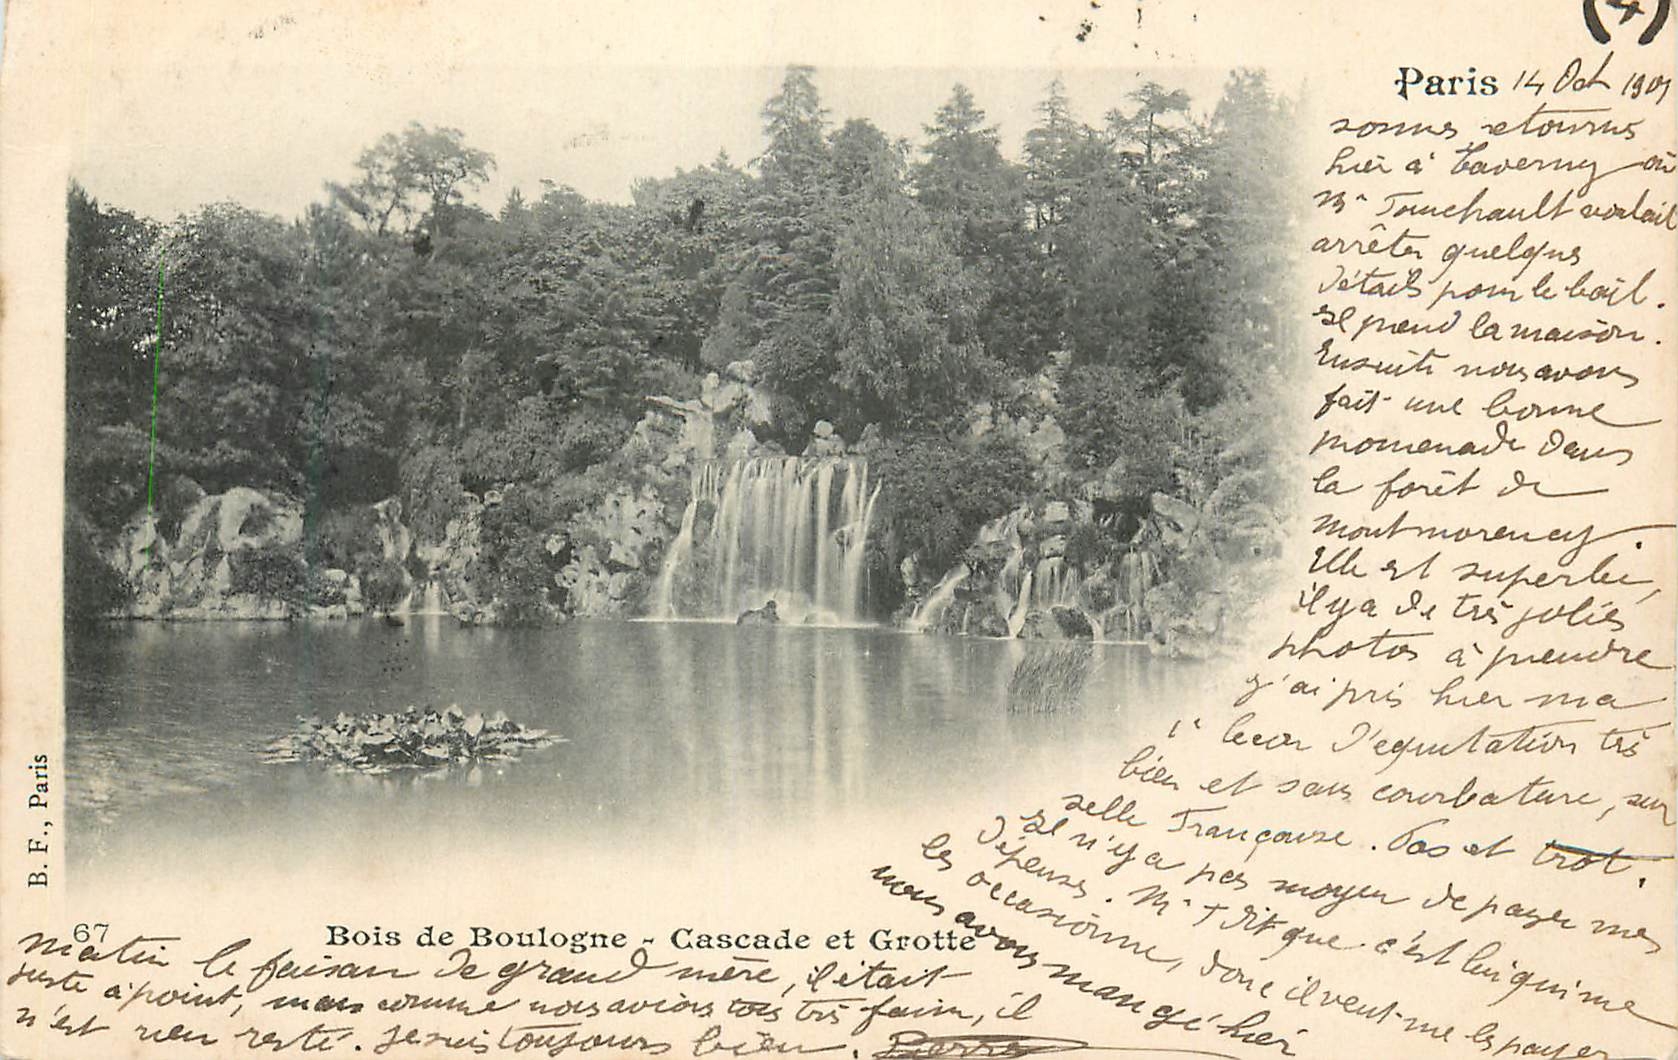 (4)
Paris 14 Oct 1901
sommes retournés
hier à Taverny où
Mr Touchault voulait
arrêter quelques
détails pour le bail.
Il prend la maison.
Ensuite nous avons
fait une bonne
promenade dans
la forêt de
Montmorency.
Elle est superbe,
il y a de très jolies
photos à prendre
j'ai pris hier ma
1e leçon d'équitation très
bien et sans courbature, sur
selle Française. Pas et trot.
Il n'y a pas moyen de payer mes
dépenses. Mr T dit que c'est lui qui me
les occasionne, donc il veut me les payer
nous avons mangé hier
matin le faisan de grand mère, il était
juste à point, mais comme nous avions tous très faim, il
n'est rien resté. Je suis toujours bien. Pierre
67 Bois de Boulogne - Cascade et Grotte
B. F., Paris